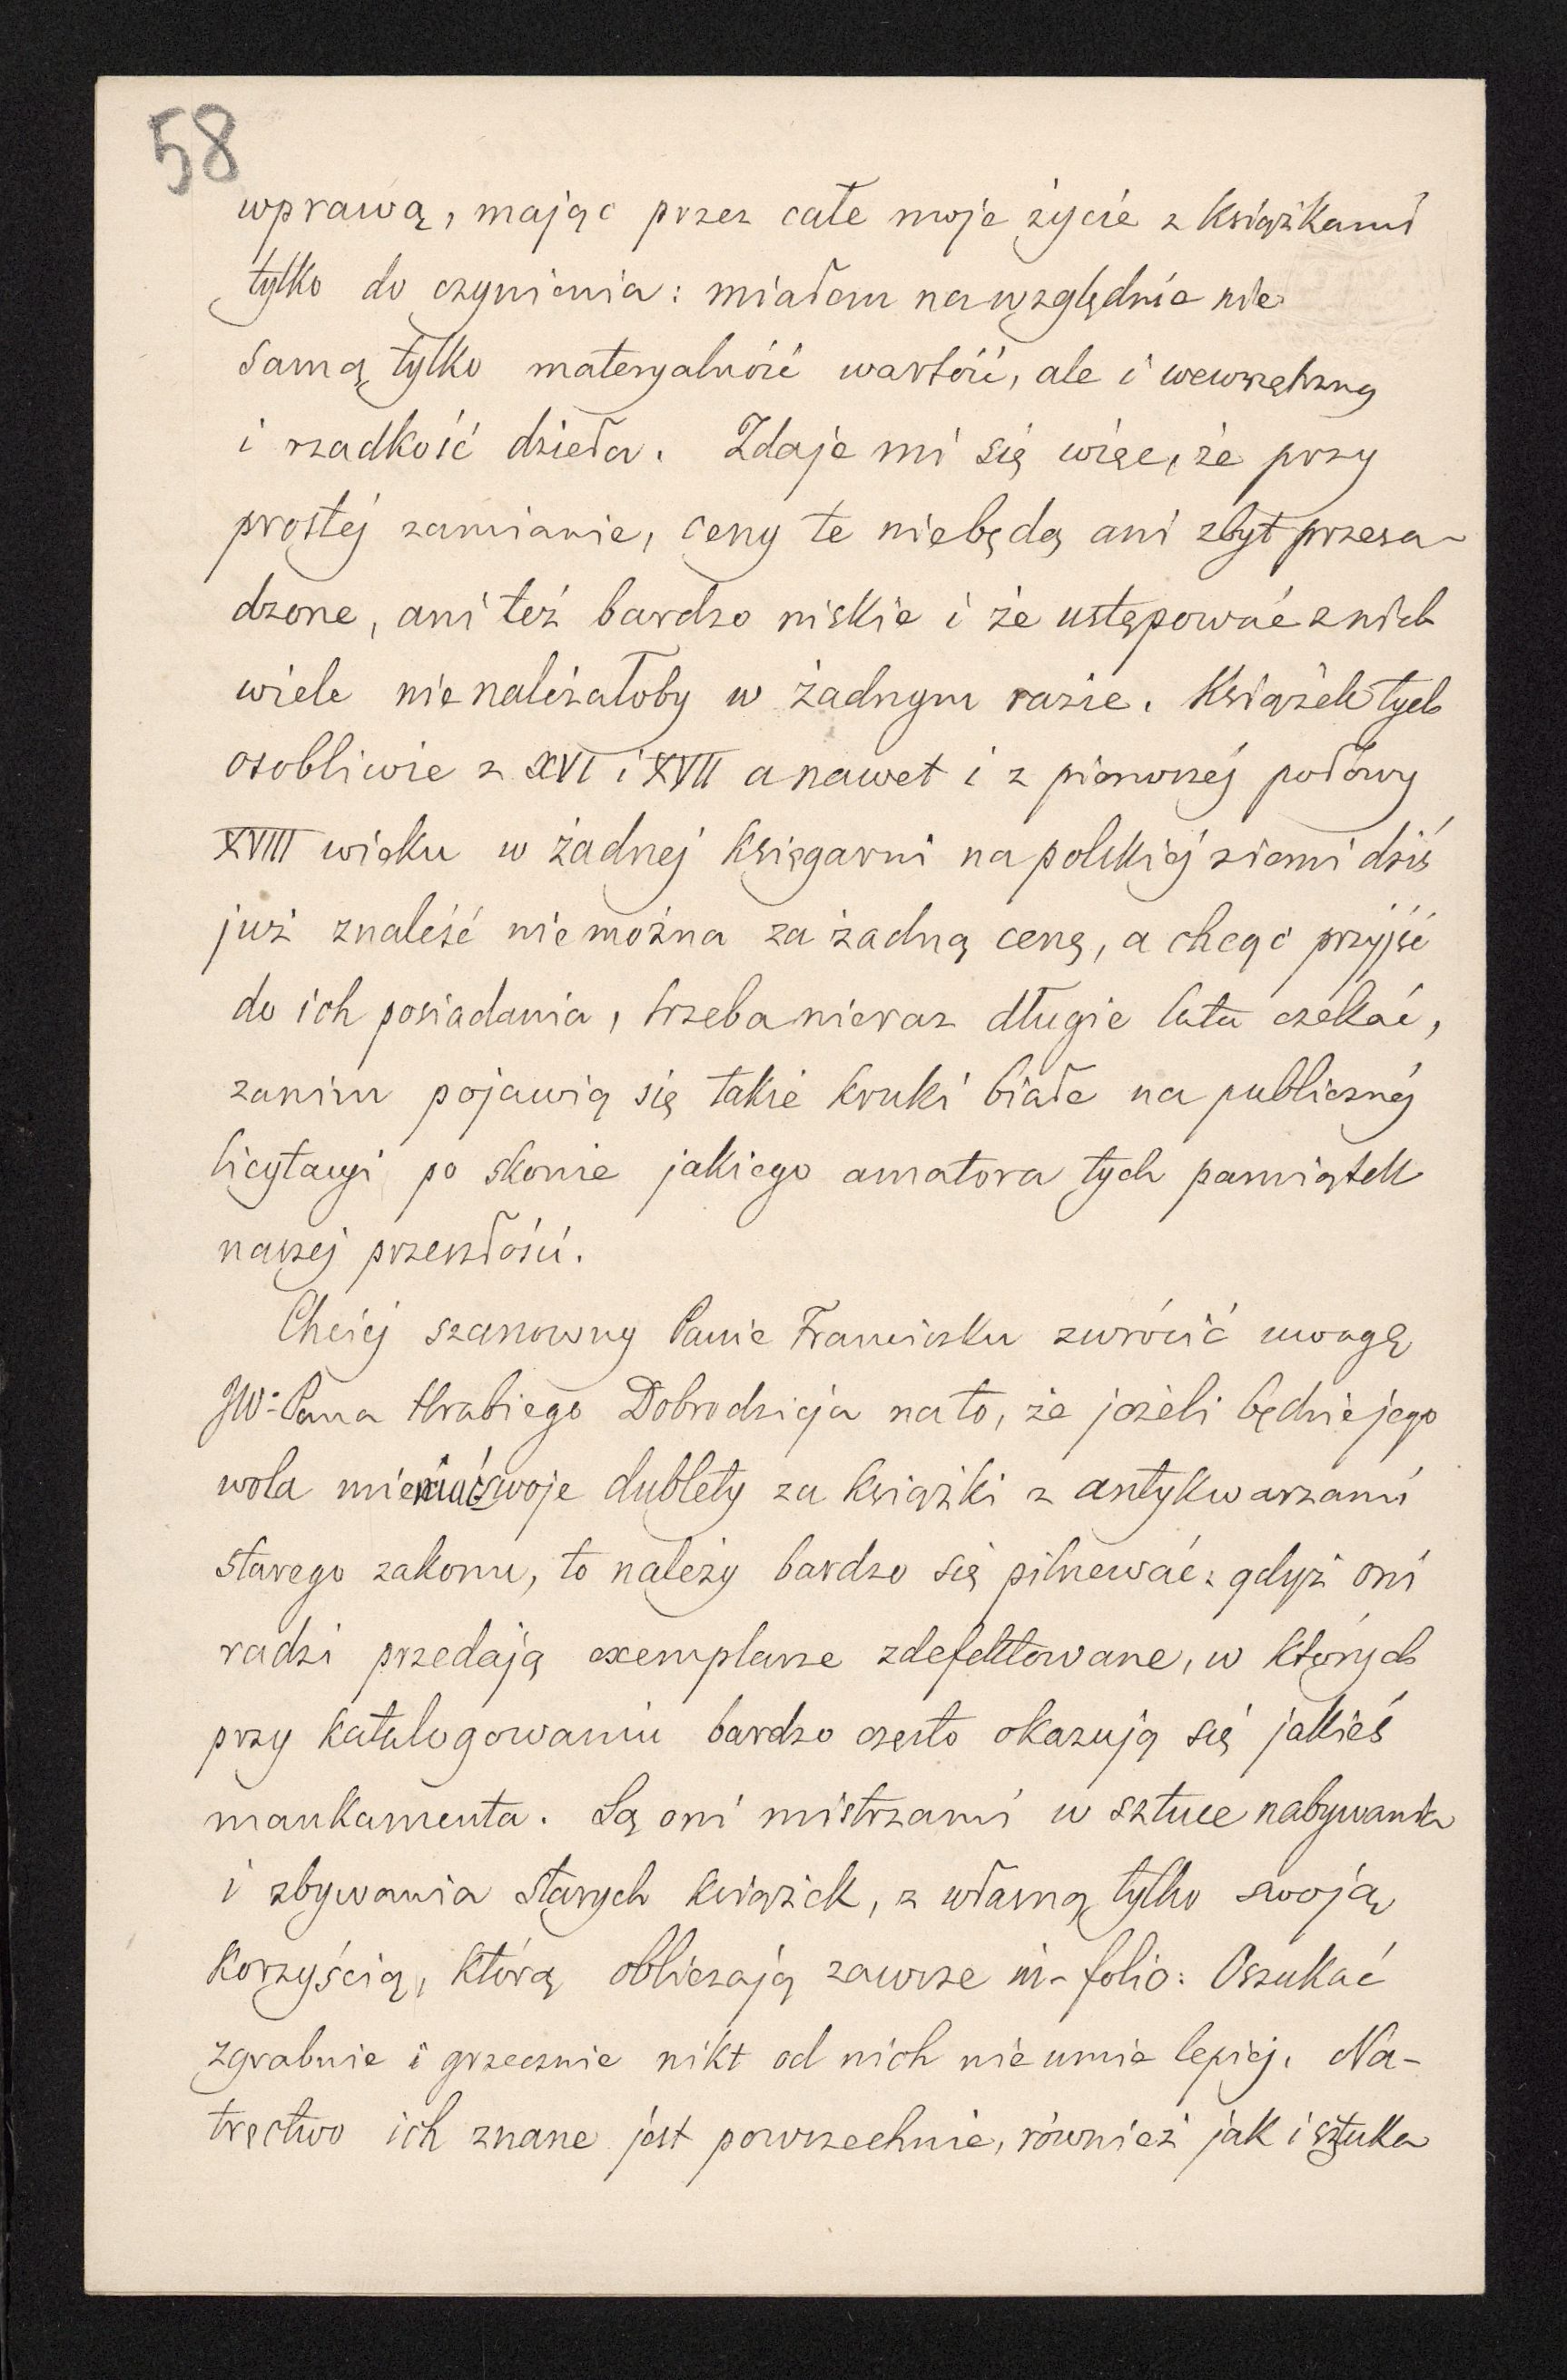 58
wprawą, mając przez całe moje życie z książkami
tylko do czynienia: miałem na względnie nie
samą tylko materyalność wartość, ale i wewnętrzną
i rzadkość dzieła. Zdaje mi się więc, że przy
prostéj zamianie, ceny te niebędą ani zbyt przesa-
dzone, ani też bardzo niskie i że ustępować z nich
wiele nie należałoby w żadnym razie. Książek tych
osobliwie z XVI i XVII a nawet i z pierwszéj połowy
XVIII wieku w żadnej księgarni na polskiéj ziemi dziś
już znaleźć nie można za żadną cenę, a chcąc przyjść
do ich posiadania, trzeba nieraz długie lata czekać,
zanim pojawią się takie kruki białe na publicznéj
licytacyi po skonie jakiego amatora tych pamiątek
naszej przeszłości.
Chciéj szanowny Panie Franciszku zwrócić uwagę
JW. Pana Hrabiego Dobrodzieja na to, że jeżeli będzie jego
wola mieniać swoje dublety za książki z antykwarzami
starego zakonu, to należy bardzo się pilnować: gdyż oni
radzi przedają exemplarze zdefektowane, w których
przy katalogowaniu bardzo często okazują się jakieś
mankamenta. Są oni mistrzami w sztuce nabywania
i zbywania starych książek, z własną tylko swoją
korzyścią, którą obliczają zawsze in-folio: Oszukać
zgrabnie i grzecznie nikt od nich nie umie lepiéj. Na-
tręctwo ich znane jest powszechnie, również jak i sztuka